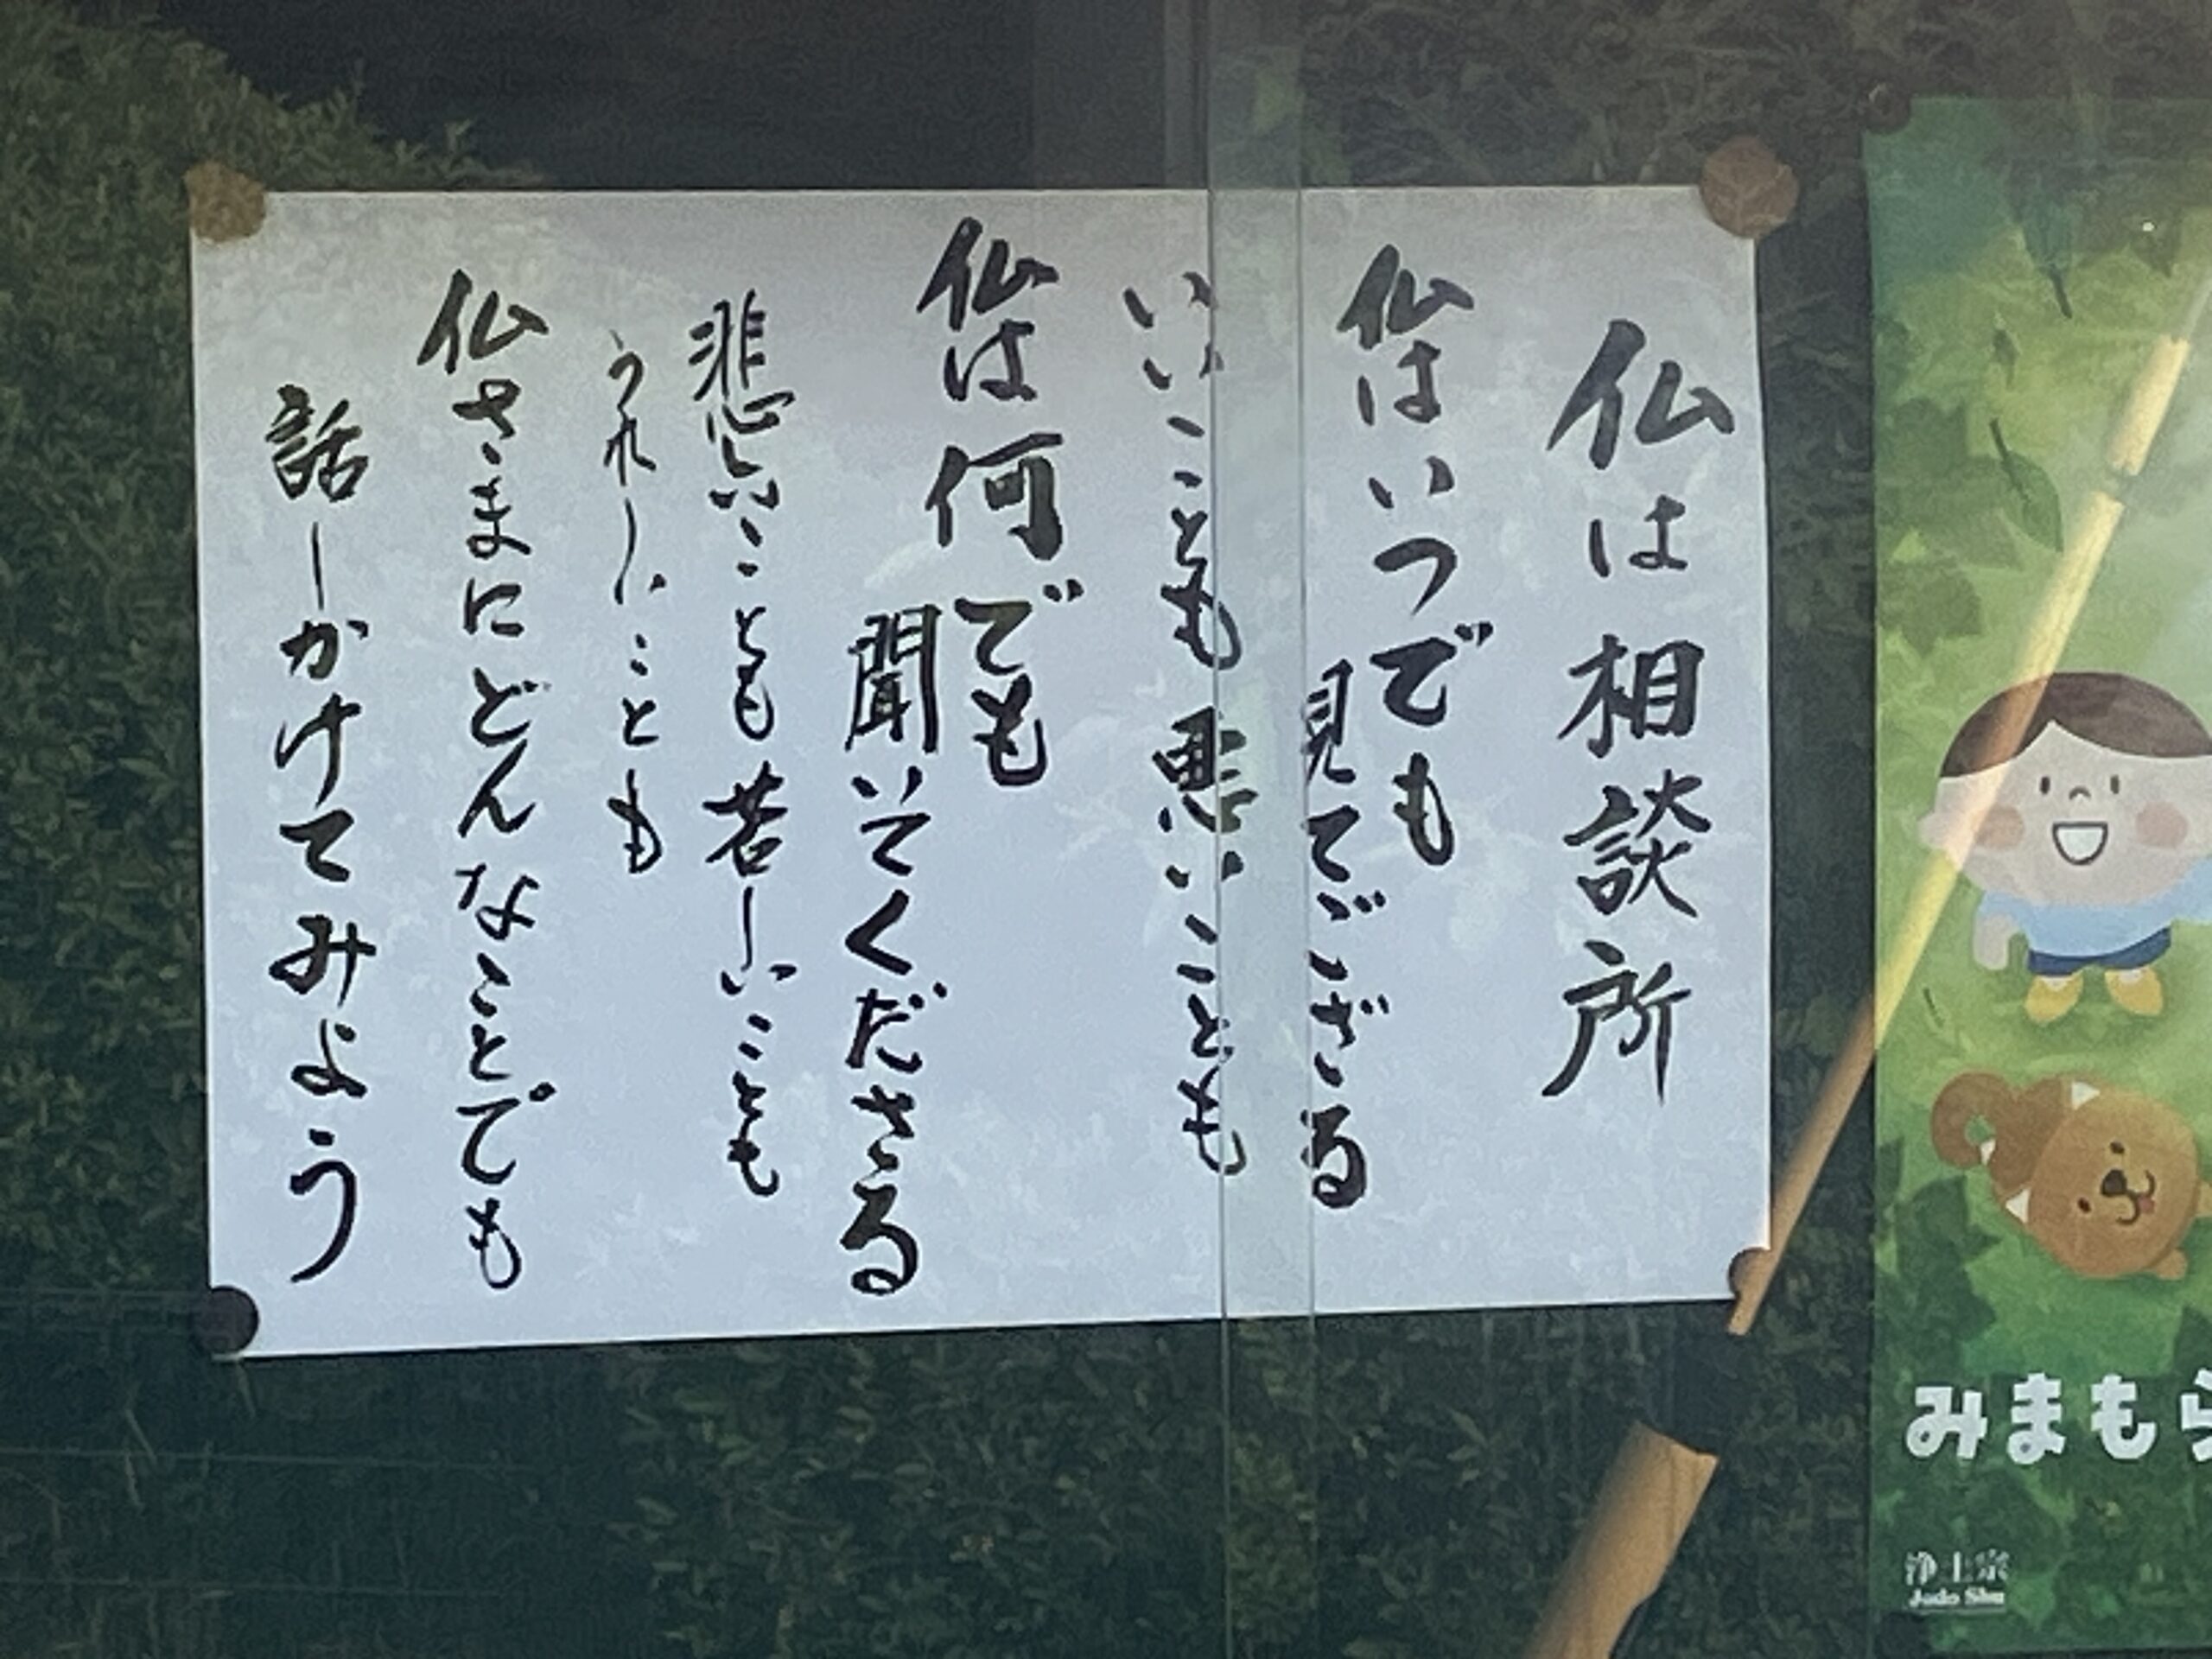 仏は相談所
仏はいつでも
見てござる
いいことも悪いことも
仏は何でも
聞いてくださる
悲しいことも苦しいことも
うれしいことも
仏さまにどんなことでも
話しかけてみよう
みまもら
浄土宗
Jodo Shu